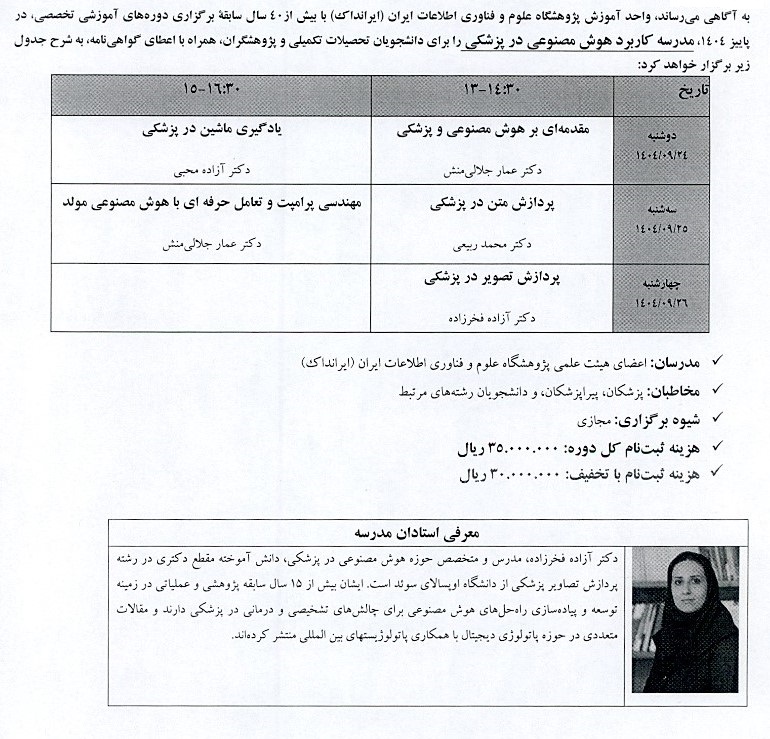 به آگاهی می‌رساند، واحد آموزش پژوهشگاه علوم و فناوری اطلاعات ایران (ایرانداک) با بیش از ٤٠ سال سابقهٔ برگزاری دوره‌های آموزشی تخصصی، در
پاییز ١٤٠٤، مدرسه کاربرد هوش مصنوعی در پزشکی را برای دانشجویان تحصیلات تکمیلی و پژوهشگران، همراه با اعطای گواهی‌نامه، به شرح جدول
زیر برگزار خواهد کرد:
تاریخ ١٣-١٤:٣٠ ١٥-١٦:٣٠
دوشنبه
١٤٠٤/٠٩/٢٤
مقدمه‌ای بر هوش مصنوعی و پزشکی
دکتر عمار جلالی‌منش
یادگیری ماشین در پزشکی
دکتر آزاده محبی
سه‌شنبه
١٤٠٤/٠٩/٢٥
پردازش متن در پزشکی
دکتر محمد ربیعی
مهندسی پرامپت و تعامل حرفه ای با هوش مصنوعی مولد
دکتر عمار جلالی‌منش
چهارشنبه
١٤٠٤/٠٩/٢٦
پردازش تصویر در پزشکی
دکتر آزاده فخرزاده
✓ مدرسان: اعضای هیئت علمی پژوهشگاه علوم و فناوری اطلاعات ایران (ایرانداک)
✓ مخاطبان: پزشکان، پیراپزشکان، و دانشجویان رشته‌های مرتبط
✓ شیوه برگزاری: مجازی
✓ هزینه ثبت‌نام کل دوره: ٣٥.٠٠٠.٠٠٠ ریال
✓ هزینه ثبت‌نام با تخفیف: ٣٠.٠٠٠.٠٠٠ ریال
معرفی استادان مدرسه
دکتر آزاده فخرزاده، مدرس و متخصص حوزه هوش مصنوعی در پزشکی، دانش آموخته مقطع دکتری در رشته
پردازش تصاویر پزشکی از دانشگاه اوپسالای سوئد است. ایشان بیش از ١٥ سال سابقه پژوهشی و عملیاتی در زمینه
توسعه و پیاده‌سازی راه‌حل‌های هوش مصنوعی برای چالش‌های تشخیصی و درمانی در پزشکی دارند و مقالات
متعددی در حوزه پاتولوژی دیجیتال با همکاری پاتولوژیستهای بین المللی منتشر کرده‌اند.